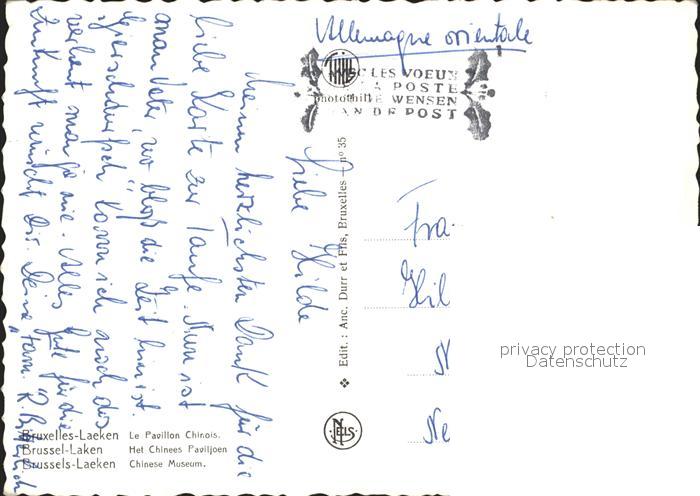 Allemagne orientale
AVEC LES VOEUX
LA POSTE
DE WENSEN
VAN DE POST
Liebe Hilde
Meinen herzlichsten Dank für die
liebe Karte zur Taufe. Nun ist
man Vater, wo bloß die Zeit hin ist.
kann ich auch das
man nie. Alles Gute für die
Zukunft wünscht Dir Deine
Edit. : Anc. Durr et Fils, Bruxelles — nº 35
NELS
Fra
Hil
N
Ne
privacy protection
Datenschutz
Bruxelles-Laeken Le Pavillon Chinois.
Brussel-Laken Het Chinees Paviljoen
Brussels-Laeken Chinese Museum.